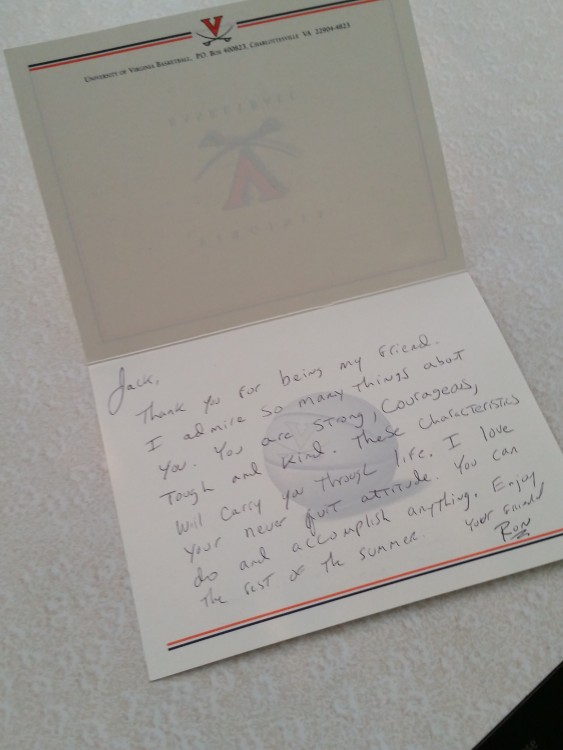 V
UNIVERSITY OF VIRGINIA BASKETBALL, P.O. BOX 400823, CHARLOTTESVILLE VA 22904-4823
VIRGINIA
Jack,
Thank you for being my friend.
I admire so many things about
you. You are strong, courageous,
tough and kind. These characteristics
will carry you through life. I love
your never quit attitude. You can
do and accomplish anything. Enjoy
the rest of the summer
Your friend
Ron